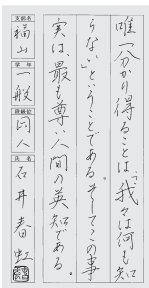 唯一分かり得ることは、「我々は何も知
らない」ということである。そしてこの事
実は、最も尊い人間の英知である。
支部名
福山
学年
一般
段級位
同人
氏名
石井春虹